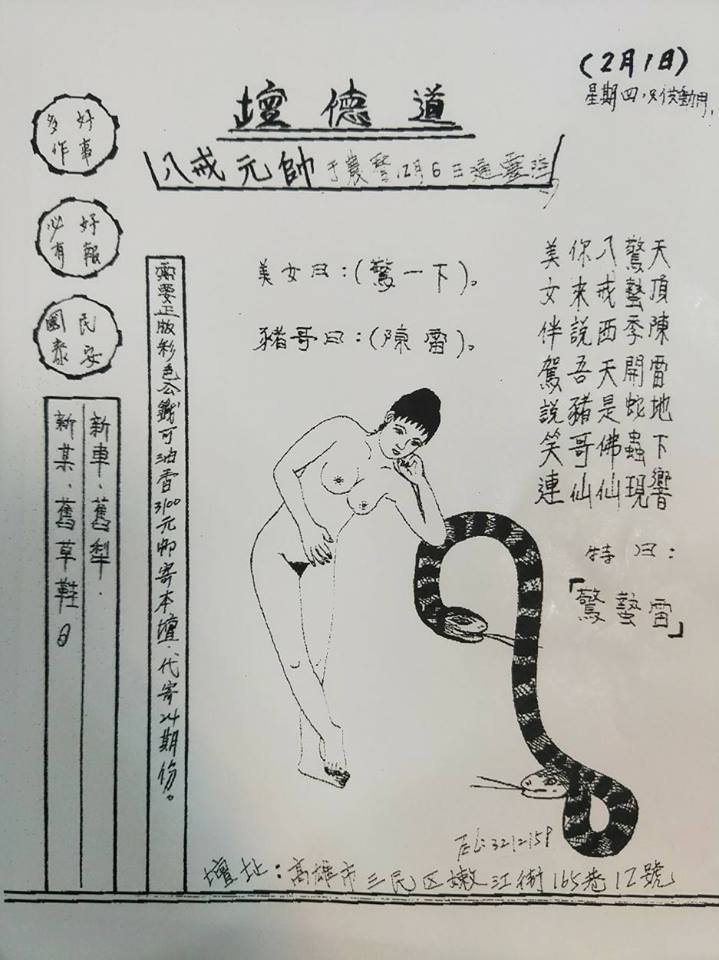 (2月1日)
星期四,
道德壇
八戒元帥 于農曆12月6日通靈
好事多作
好報必有
民安國泰
天頂陳雷地下響
驚蟄季開蛇蟲現
八戒西天是佛仙
你来說吾豬哥仙
美女伴駕說笑連
特曰:
「驚蟄雷」
美女曰:(驚一下)。
豬哥曰:(陳雷)。
需要正版彩色公籤可油香3100元郵寄本壇.代寄24期份。
新車、舊犁.
新某、舊草鞋
TEL:3212158
壇址:高雄市三民区嫩江街165巷12號